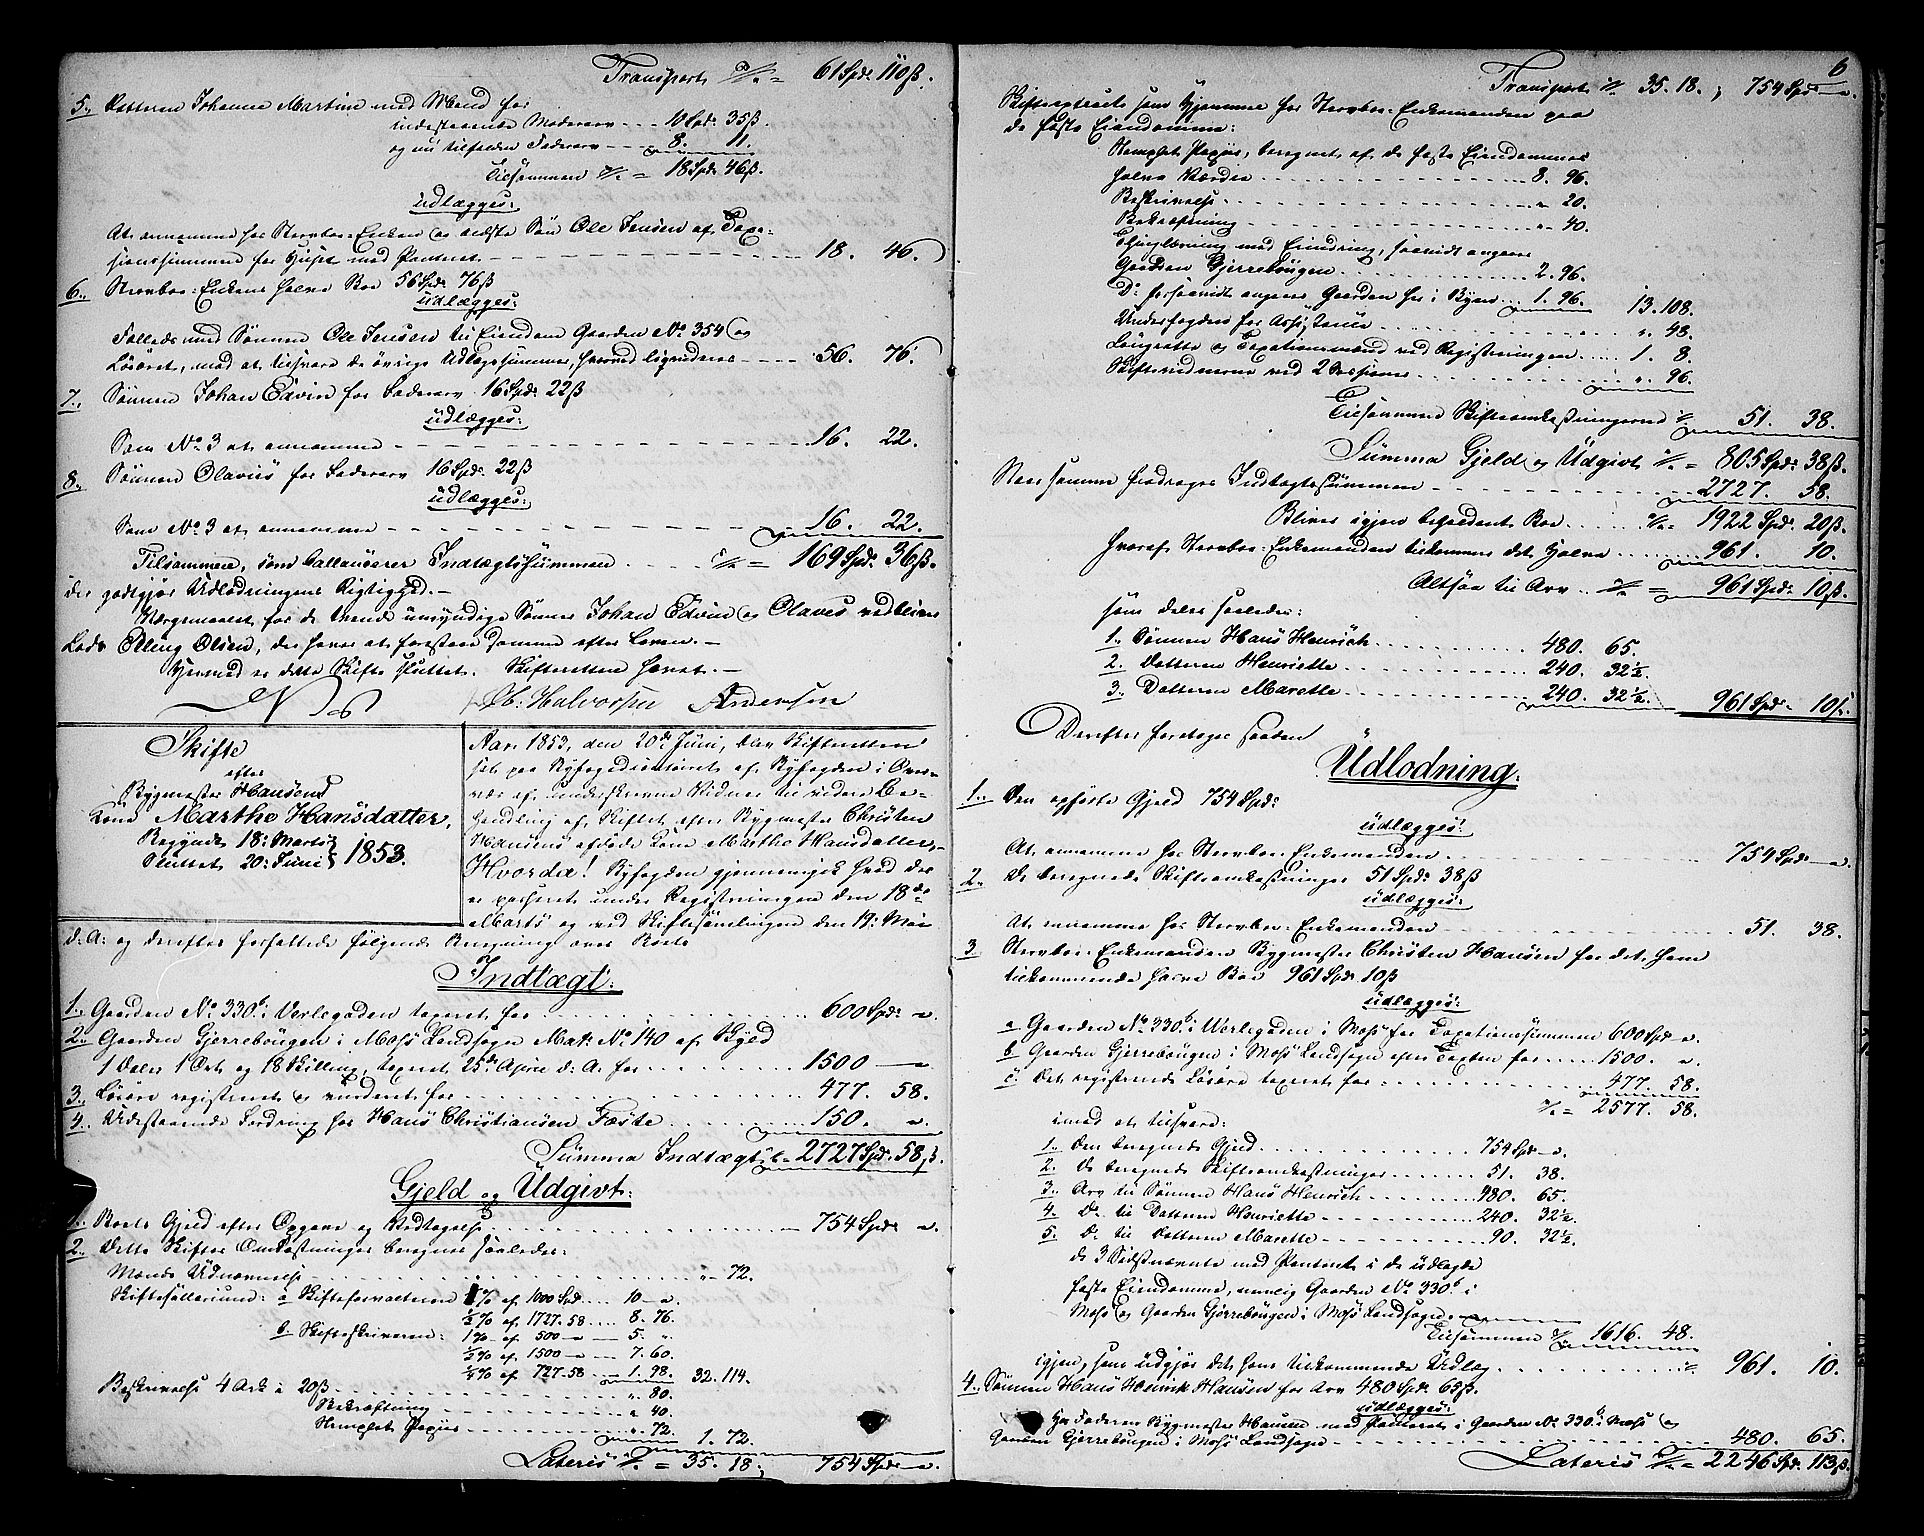 Transport %= 61 Spd: 110ß.
5., Datteren Johanne Martine med Mand for
indestaaende Moderarv - - - 10 Spd: 35ß.
og nu tilfalden Faderarv - - - 8. 11.
Tilsammen % = 18 Spd: 46ß.
udlægges:
At annamme hos Stervboe-Enken og ældste Søn Ole Jensen af Taxa-
tionssummen for Huset med Panteret - - - 18. 46.
6., Stervboe-Enkens halve Boe 56 Spd: 76ß
Udlægges:
Fælleds med Sønnen Ole Jensen til Eiendom Gaarden No 354 og
Løsøret, mod at tilsvare de øvrige Udlægssummer, hvorved ligeoverens - - - 56. 76.
7., Sønnen Johan Edvin for Faderarv 16 Spd: 22ß
udlægges:
Som No 3 at annamme - - - 16. 22.
8., Sønnen Olavus for Faderarv 16 Spd: 22ß
udlægges:
Som No 3 at annamme - - - 16. 22.
Tilsammen, som ballancerer Indtægtssummen . . . % = 169 Spd: 36ß.
der godtgjør Udlodningens Rigtighed. -
Værgemaalet for de tvende umyndige Sønner Johan Edvin og Olaves vedbliver
Lods Elling Olsen, der haver at forestaae samme efter Loven. -
Hermed er dette Skifte sluttet. Skifteretten hævet. -
Ch: Halvorsen Andersen
Skifte
efter
Bygmester Hansens
Kone Marthe Hansdatter,
Begyndt 18: Marts
Sluttet 20: Juni 1853.
Aar 1853, den 20de Juni, blev Skifteretten
sat paa Byfogedcontoiret af Byfogden i Over-
vær af underskrevne Vidner til videre Be-
handling af Skiftet efter Bygmester Christen
Hansens afdøde Kone Marthe Hansdatter, -
Hvorda! Byfogden gjennemgik hvad der
er passeret under Registreringen den 18de
Marts og ved Skiftesamlingen den 17: Mai
d: A: og derefter forfattede følgende Beregning over Boets
Indtægt:
1., Gaarden No 330b i Verlegaden taxeret for . . . 600 Spd: ".
2., Gaarden Gjerrebougen i Moss Landsogn Mat: No 140 af Skyld
1 Daler 1 Ort og 18 Skilling, taxeret 25de April d: A: for . . . 1500 — "
3., Løsøre registreret og vurderet for . . . 477. 58.
4., Udestaaende Fordring hos Hans Christiansen Fæste . . . 150. ".
Summa Indtægt % = 2727 Spd: 58ß.
Gjeld og Udgivt:
1., Boets Gjeld efter Opgave og Vedtagelse . . . 754 Spd: ".
2., Dette Skiftes Omkostninger beregnes saaledes:
Mænds Udnævnelse - - - " - 72.
Skiftesallarium: a Skifteforvalteren 1% af 1000 Spd. . . . 10 - ".
½% af 1727. 58 . . . 8. 76.
b. Skifteskriveren: 1% af 500 - " - - 5. ".
½% af 1500 - " - - 7. 60.
¼% af 727. 58 - - 1. 98. 32. 114.
Beskrivelse 4 Ark à 20ß . . . ". 80.
Bekræftning . . . ". 40.
Stemplet Papiir . . . ". 72. 1. 72.
Lateris % = 35. 18; 754 Spd: ".
6
Transport % 35. 18. ; 754 Spd: ".
Skifteextracts som Hjemmel for Stervboe-Enkemanden paa
de faste Eiendomme:
Stemplet Papiir, beregnet af de faste Eiendommes
halve Værdie . . . 8. 96.
Beskrivelse . . . " 20.
Bekræftning . . . " 40.
Thinglæsning med Erindring, saavidt angaaer
Gaarden Gjerrebougen . . . 2. 96.
Do forsaavidt angaaer Gaarden her i Byen . . . 1. 96. 13. 108.
Underfogden for Assistance . . . ". 48.
Laugrette og Taxationsmænd ved Registreringen . . . 1. 8.
Skiftevidnerne ved 2 Sessioner . . . ". 96.
Tilsammen Skifteomkostningerne % 51. 38.
Summa Gjeld og Udgivt % = 805 Spd: 38ß.
Naar samme fradrages Indtægtssummen - - - 2727. 58.
Bliver igjen beholdent Boe . . . % = 1922 Spd: 20ß.
hvoraf Stervboe-Enkemanden tilkommer det halve . . . 961. 10.
Altsaa til Arv % = 961 Spd: 10ß.
som deles saaledes:
1., Sønnen Hans Henrich . . . 480. 65.
2., Datteren Henriette . . . 240. 32½.
3., Datteren Marette . . . 240. 32½. 961 Spd: 10ß.
Derefter foretoges saadan
Udlodning:
1., Den opførte Gjeld 754 Spd:
udlægges:
At annamme hos Stervboe-Enkemanden . . . 754 Spd: ".
2., De beregnede Skifteomkostninger 51 Spd: 38ß
udlægges:
At annamme hos Stervboe-Enkemanden . . . 51. 38.
3. Stervboe-Enkemanden Bygmester Christen Hansen for det ham
tilkommende halve Boe 961 Spd: 10ß
udlægges:
a Gaarden No 330b i Werlegaden i Moss for Taxationssummen 600 Spd: ".
b Gaarden Gjerrebougen i Moss Landsogn efter Taxten for . . . 1500. ".
c Det registrerede Løsøre taxeret for . . . 477. 58.
% = 2577. 58.
imod at tilsvare:
1., Den beregnede Gjeld . . . 754 Spd: ".
2. De beregnede Skifteomkostninger . . . 51. 38.
3., Arv til Sønnen Hans Henrich . . . 480. 65.
4. Do til Datteren Henriette . . . 240. 32½.
5. Do til Datteren Marette . . . 90. 32½.
de 3 Sidstnævnte med Panteret i de udlagde
faste Eiendomme, nemlig Gaarden No 330b i
Moss og Gaarden Gjerrebougen i Moss Landsogn.
Tilsammen % 1616. 48.
igjen, som udgjør det ham tilkommende Udlæg . . . % 961. 10.
4., Sønnen Hans Henrik Hansen for Arv 480 Spd: 65ß.
udlægges:
Hos Faderen Bygmester Hansen med Panteret i Gaarden No 330b i Moss og
Gaarden Gjerrebougen i Moss Landsogn . . . 480. 65.
Lateris % = 2246 Spd: 113ß.